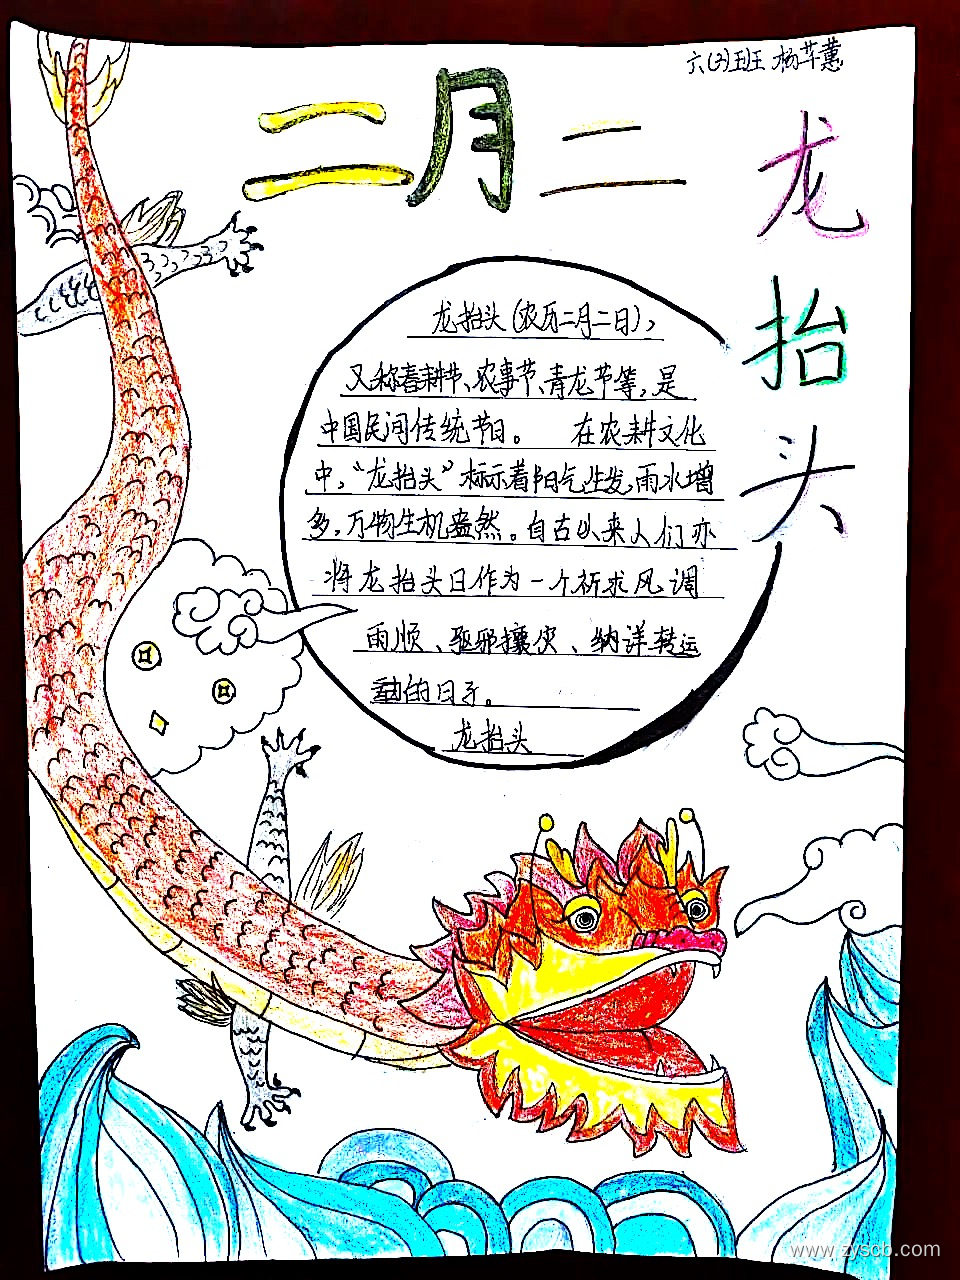 六(3)班 杨芊蕙
二月二
龙抬头
龙抬头(农历二月二日),
又称春耕节、农事节、青龙节等,是
中国民间传统节日。 在农耕文化
中,“龙抬头”标示着阳气生发,雨水增
多,万物生机盎然。自古以来人们亦
将龙抬头日作为一个祈求风调
雨顺、驱邪攘灾、纳详转运
的日子。
龙抬头
www.zyscb.com